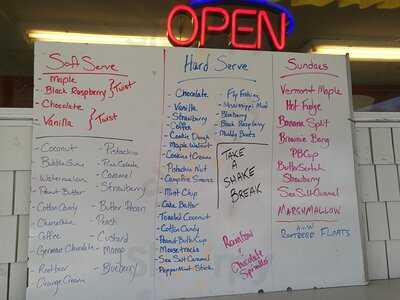 OPEN
Soft Serve
- Maple
- Black Raspberry } Twist
- Chocolate
- Vanilla } Twist
- Coconut
- Watermelon
- Peanut Butter
- Cotton Candy
- Coffee
- German Chocolate
- Root beer
- Orange Cream
- Pistachio
- Pina Colada
- Caramel
- Strawberry
- Butter Pecan
- Peach
- Custard
- Blueberry
Hard Serve
- Chocolate
- Vanilla
- Strawberry
- Coffee
- Cookie Dough
- Maple Walnut
- Cookies & Cream
- Pistachio Nut
- Campfire Smores
- Mint Chip
- Cake Batter
- Toasted Coconut
- Cotton Candy
- Peanut Butter Cup
- Moosetracks
- Sea Salt Caramel
- Peppermint Stick
- Fly Fishing
- Mississippi Mud
- Blueberry
- Black Raspberry
- Muddy Boots
TAKE
A
SHAKE
BREAK
Rainbow
&
Chocolate
Sprinkles
Sundaes
Vermont Maple
Hot Fudge
Banana Split
Brownie Bang
PB Cup
ButterScotch
Strawberry
Sea Salt Caramel
MARSHMALLOW
A&W
ROOTBEER FLOATS